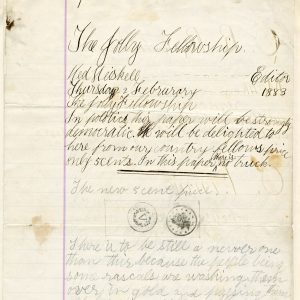 The Jolly Fellowship.
Ned Meskell Editor
Thursday Februrary 1883
The Jolly Fellowship
In politics this paper will be strongly
democratic. We will be delighted to
here from our country fellows price
only 5 cents. In this paper there is no truck.
The new 5 cent piece
V
There is to be still a newer one
than this, because the people being
some rascals are washing them
over in gold and passing them